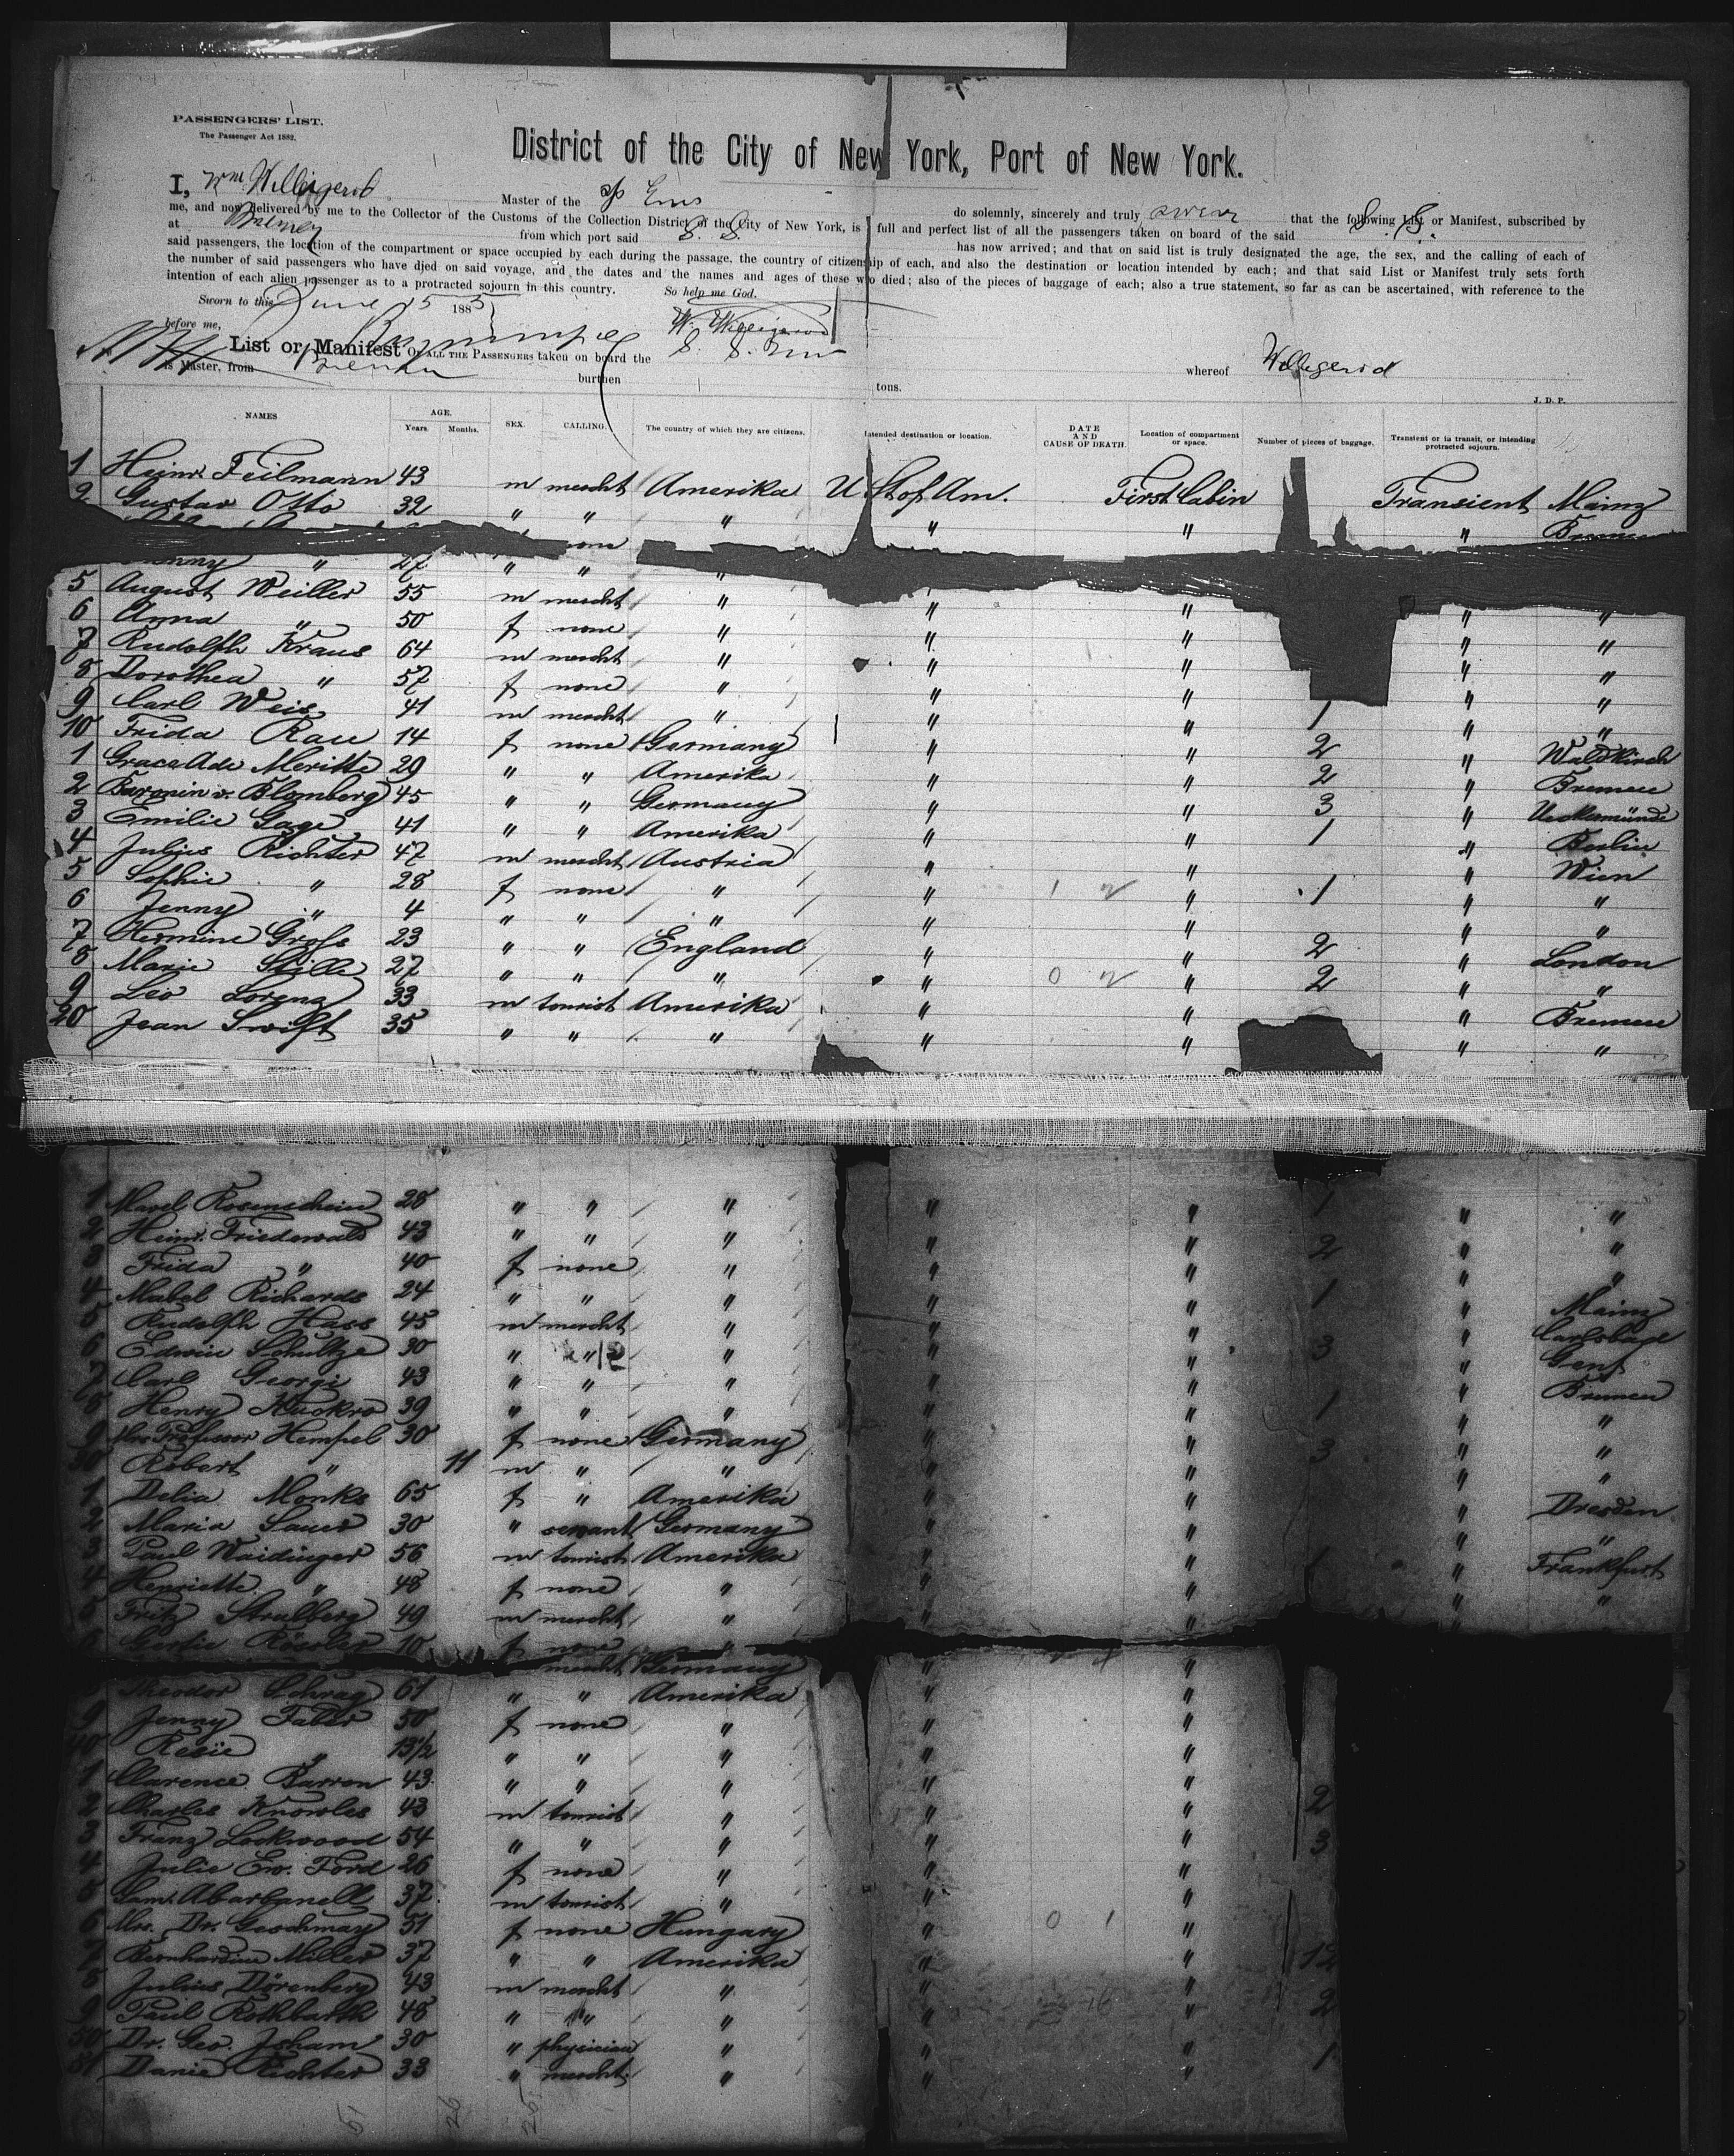 PASSENGERS' LIST.
The Passenger Act 1882.
District of the City of New York, Port of New York.
I, Wm Willigerod Master of the SS Ems do solemnly, sincerely and truly swear that the following List or Manifest, subscribed by
me, and now delivered by me to the Collector of the Customs of the Collection District of the City of New York, is a full and perfect list of all the passengers taken on board of the said S. S.
at Bremen from which port said S. S. has now arrived; and that on said list is truly designated the age, the sex, and the calling of each of
said passengers, the location of the compartment or space occupied by each during the passage, the country of citizenship of each, and also the destination or location intended by each; and that said List or Manifest truly sets forth
the number of said passengers who have died on said voyage, and the dates and the names and ages of these who died; also of the pieces of baggage of each; also a true statement, so far as can be ascertained, with reference to the
intention of each alien passenger as to a protracted sojourn in this country. So help me God.
Sworn to this June 15 1885
W. Willigerod
before me,
List or Manifest OF ALL THE PASSENGERS taken on board the S. S. Ems whereof Willigerod
is Master, from Bremen burthen tons.
J. D. P.
NAMES AGE. Years. Months. SEX. CALLING. The country of which they are citizens. Intended destination or location. DATE AND CAUSE OF DEATH. Location of compartment or space. Number of pieces of baggage. Transient or in transit, or intending protracted sojourn.
1 Heinr. Feilmann 43 m mercht Amerika U St of Am. First Cabin Transient Mainz
2 Gustav Otto 32 " " " " " " Bremen
none
" 27 " " "
5 August Weiller 55 m mercht " " " " "
6 Anna " 50 f none " " " " "
7 Rudolph Kraus 64 m mercht " " " " "
8 Dorothea " 57 f none " " " " "
9 Carl Weis 41 m mercht " " " 1 " "
10 Frida Rau 14 f none Germany " " 2 " Waldkirch
1 Grace Ade Meritte 29 " " Amerika " " 2 " Bremen
2 Baronin v. Blomberg 45 " " Germany " " 3 " Ueckermünde
3 Emilie Gage 41 " " Amerika " " 1 " Berlin
4 Julius Richter 47 m mercht Austria " " " Wien
5 Sophie " 28 f none " " " 1 " "
6 Jenny " 4 " " " " " " "
7 Hermine Gross 23 " " England " " 2 " London
8 Marie Stille 27 " " " " " 2 " "
9 Leo Lorenz 33 m tourist Amerika " " " Bremen
20 Jean Swift 35 " " " " " " "
1 Rosenschein 28 " " " " " 1 " "
2 Heinr. Friedewald 43 " " " " " 2 " "
3 Frida " 40 f none " " " " "
4 Mabel Richards 24 " " " " " 1 " Mainz
5 Rudolph Hass 45 m mercht " " " " Carlsbad
6 Edwin Schultze 30 " " " " " 3 " Genf
7 Carl Georgi 43 " " " " " " Bremen
8 Henry 39 " " " " " 1 " "
9 Mrs. Professor Hempel 30 f none Germany " " 3 " "
30 Robert " 11 m " " " " " "
1 Delia Monks 65 f " Amerika " " " Dresden
2 Maria Sauer 30 " servant Germany " " " "
3 Paul Waidinger 56 m tourist Amerika " " 1 " Frankfurt
4 Henriette " 48 f none " " " " "
5 Fritz Stralberg 49 m mercht " " " "
6 Gertie Rössler 10 f none "
mercht Germany " "
Theodor Schrag 61 " " Amerika " "
9 Jenny Faber 50 f none " " "
40 Resie " 13½ " " " " "
1 Clarence Barron 43 " " " " "
2 Charles Knowles 43 m tourist " " " 2
3 Franz Lockwood 54 " " " " " 3
4 Julie Ew. Ford 26 f none " " "
5 Sam. Abarbanell 37 m tourist " " "
6 Mrs. Dr. Geschmay 51 f none Hungary " 0 1 "
7 Bernhardine Miller 37 " " Amerika " " 12
8 Julius Dörenberg 43 m mercht " " "
9 Paul Rothbarth 48 " " " " " 2
50 Dr. Geo. Isham 30 " physician " " "
51 Danie Richter 33 " mercht " " " 1
51 26 25